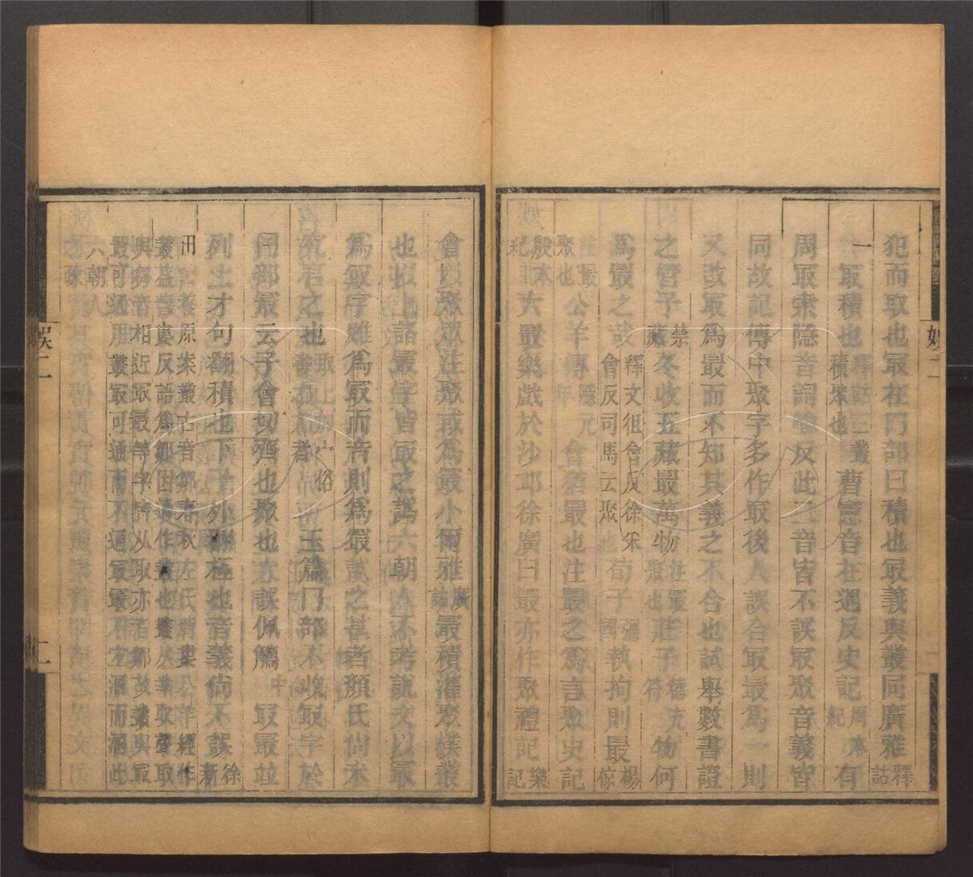 犯而取也冣在冖部曰積也冣義與叢同廣雅釋詁
一冣積也釋詁三叢積聚也曹憲音在遇反史記周本紀有
周冣索隱音詞喻反此二音皆不誤冣聚音義皆
同故記傳中聚字多作冣後人誤合冣最爲一則
又改冣爲最而不知其義之不合也試舉數書證
之管子禁藏冬收五藏最萬物注最聚也莊子德充符物何
爲最之哉釋文徂會反徐采會反司馬云聚也荀子彊國執拘則最楊倞
注最聚也公羊傳隱元年會猶最也注最之爲言聚史記
殷本紀大最樂戲於沙邱徐廣曰最亦作聚禮記樂記
會以聚眾注聚或爲最小爾雅廣詁最積灌聚樸叢
也以上諸最字皆冣之譌六朝人不考說文以冣
爲最字雖爲冣而音則爲最試之甚者顏氏尚未
究言之也玉篇冖部不收冣字於
冃部最云子會切齊也聚也亦誤佩觿中冣最並
列上才句翻積也下子外翻極也音義尚不誤徐新
與鄒音相近
最可通用叢冣可通而不通冣最不宜溷而溷此
六朝人
娛二